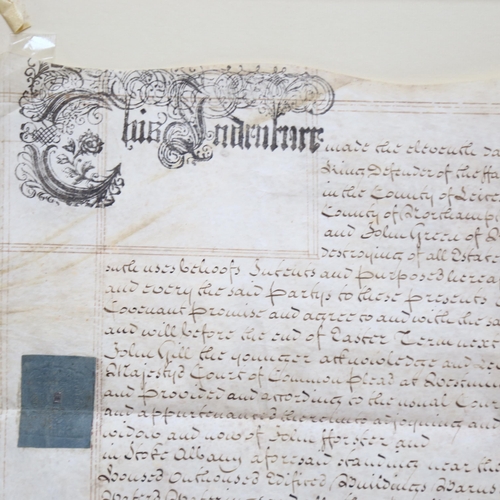 This Indenture made the eleventh da
King Defender of the ffa
in the County of Leice
County of Northamp
and John Green of
destroying of all Estate
such uses behoofs Intents and purposes herea
and every the said Partys to these presents
Covenant Promise and agree to and with the s
and will before the end of Easter Term next
John Gill the younger acknowledge and
Majestys Court of Common pleas at Westmin
and Provided and according to the usual Co
and appurtenances thereunto belonging and
widow and now of John fforster and
in Stoke Albany aforesaid standing near the
houses Outhouses Edifices Buildings Barns